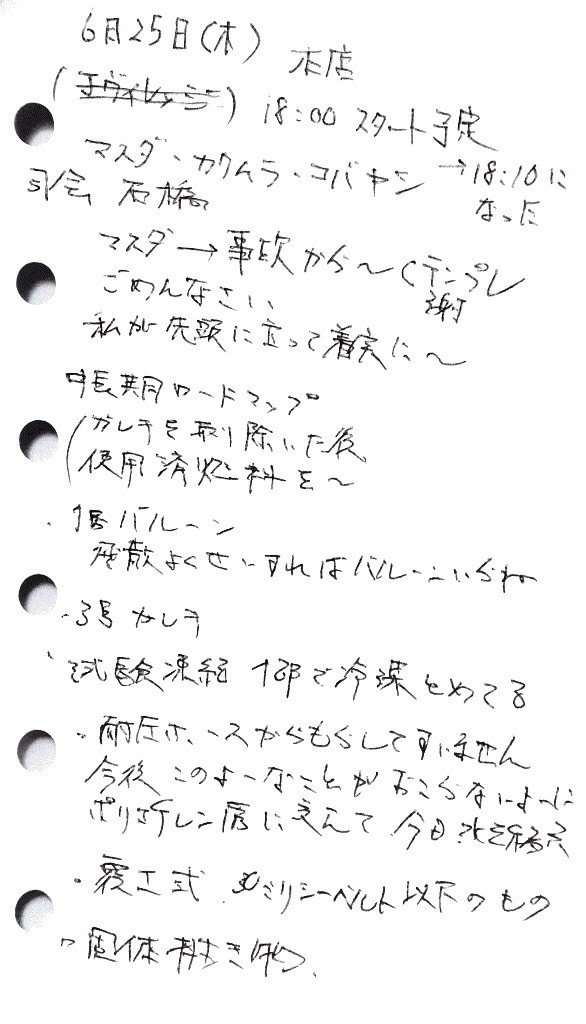 6月25日(木) 本店
(エヴィレッジ) 18:00 スタート予定
マスダ・カワムラ・コバヤシ →18:10に
なった
司会 石橋
マスダ → 事故から〜 (テンプレ
謝
ごめんなさい、
私が先頭に立って着実に〜
中長共同ロードマップ
(ガレキを取り除いた後、
使用済燃料を〜
・1号バルーン
飛散よくせいすればバルーンいらね
・3号ガレキ
・試験凍結 1部で冷媒とめてる
・耐圧ホースからもらしてすいません
今後このよーなことがおこらないよーに
ポリエチレン管に交んて 今日
・覆土式 30ミリシーベルト以下のもの
・固体